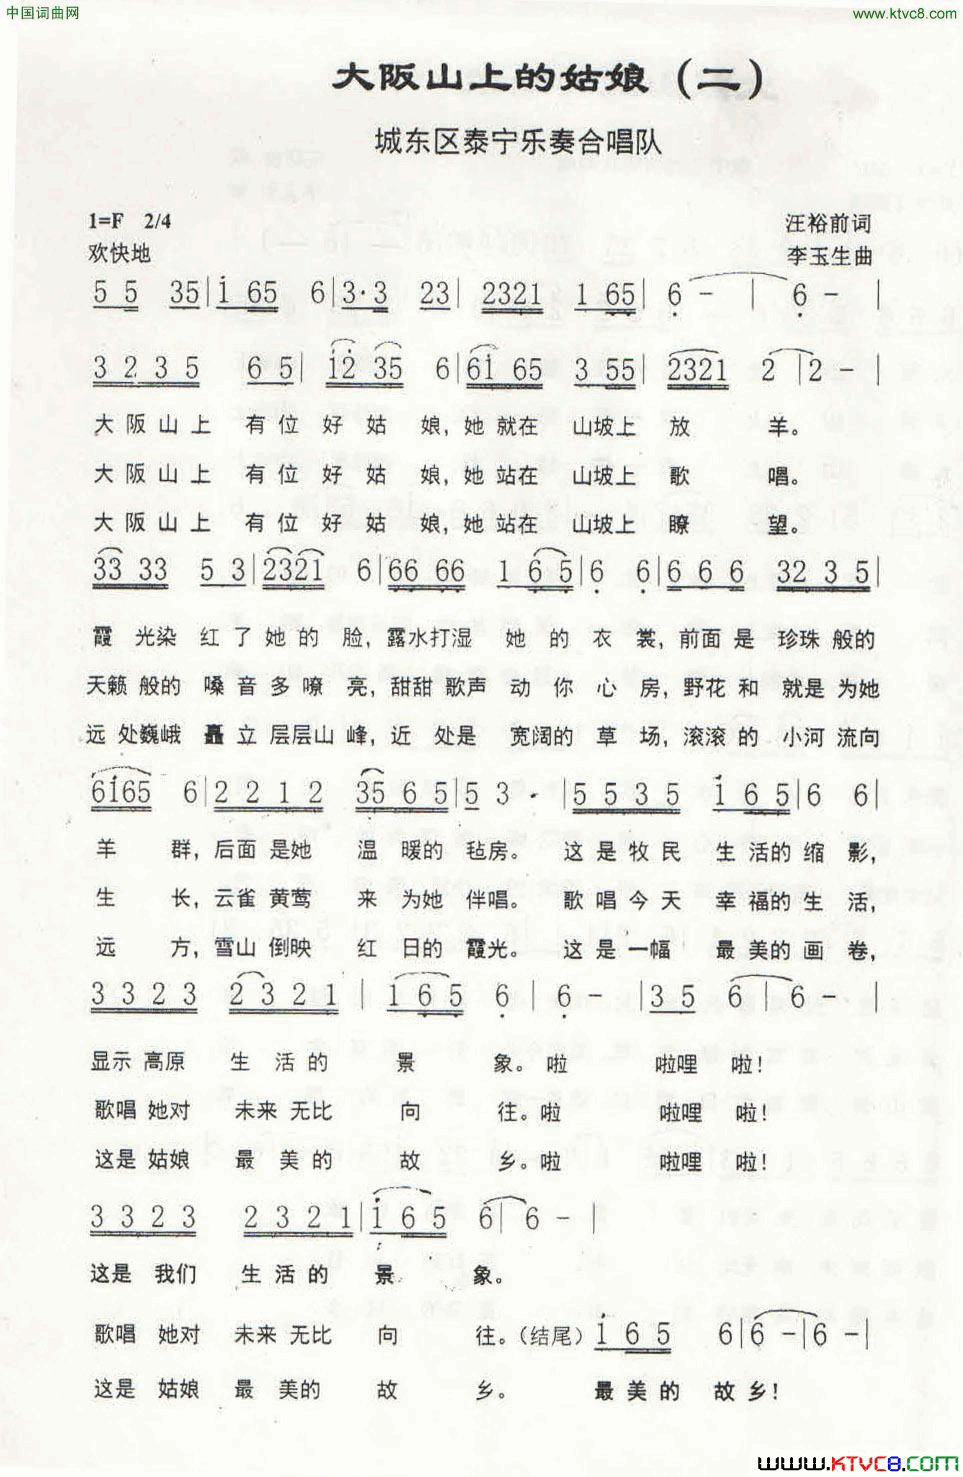 中国词曲网 www.ktvc8.com
大阪山上的姑娘（二）
城东区泰宁乐奏合唱队
1=F 2/4 汪裕前词
欢快地 李玉生曲
5 5 35|1 65 6|3·3 23|2321 1 65|6 - | 6 - |
3 2 3 5 6 5|12 35 6|61 65 3 55|2321 2 |2 - |
大阪山上 有位好姑 娘,她就在 山坡上 放 羊。
大阪山上 有位好姑 娘,她站在 山坡上 歌 唱。
大阪山上 有位好姑 娘,她站在 山坡上 瞭 望。
33 33 5 3|2321 6|66 66 1 6 5|6 6|6 6 6 32 3 5|
霞 光染 红了她的 脸,露水打湿 她的衣 裳,前面是 珍珠般的
天籁般的 嗓音多嘹 亮,甜甜歌声 动你心 房,野花和 就是为她
远处巍峨 矗立层层山 峰,近处是 宽阔的草 场,滚滚的 小河流向
6165 6|2 2 1 2 35 6 5|5 3 · |5 5 3 5 1 6 5|6 6|
羊 群,后面是她 温 暖的毡房。 这是牧民 生活的缩 影,
生 长,云雀黄莺 来 为她伴唱。 歌唱今天 幸福的生 活,
远 方,雪山倒映 红 日的霞光。 这是一幅 最美的画 卷,
3 3 2 3 2 3 2 1 |1 6 5 6 |6 - |3 5 6 |6 - |
显示高原 生活的 景 象。啦 啦哩 啦!
歌唱她对 未来无比 向 往。啦 啦哩 啦!
这是姑娘 最美的 故 乡。啦 啦哩 啦!
3 3 2 3 2 3 2 1|1 6 5 6|6 - |
这是我们 生活的 景 象。
歌唱她对 未来无比 向 往。(结尾) 1 6 5 6|6 -|6 -|
这是姑娘 最美的 故 乡。 最美的 故乡!
www.KTVC8.com